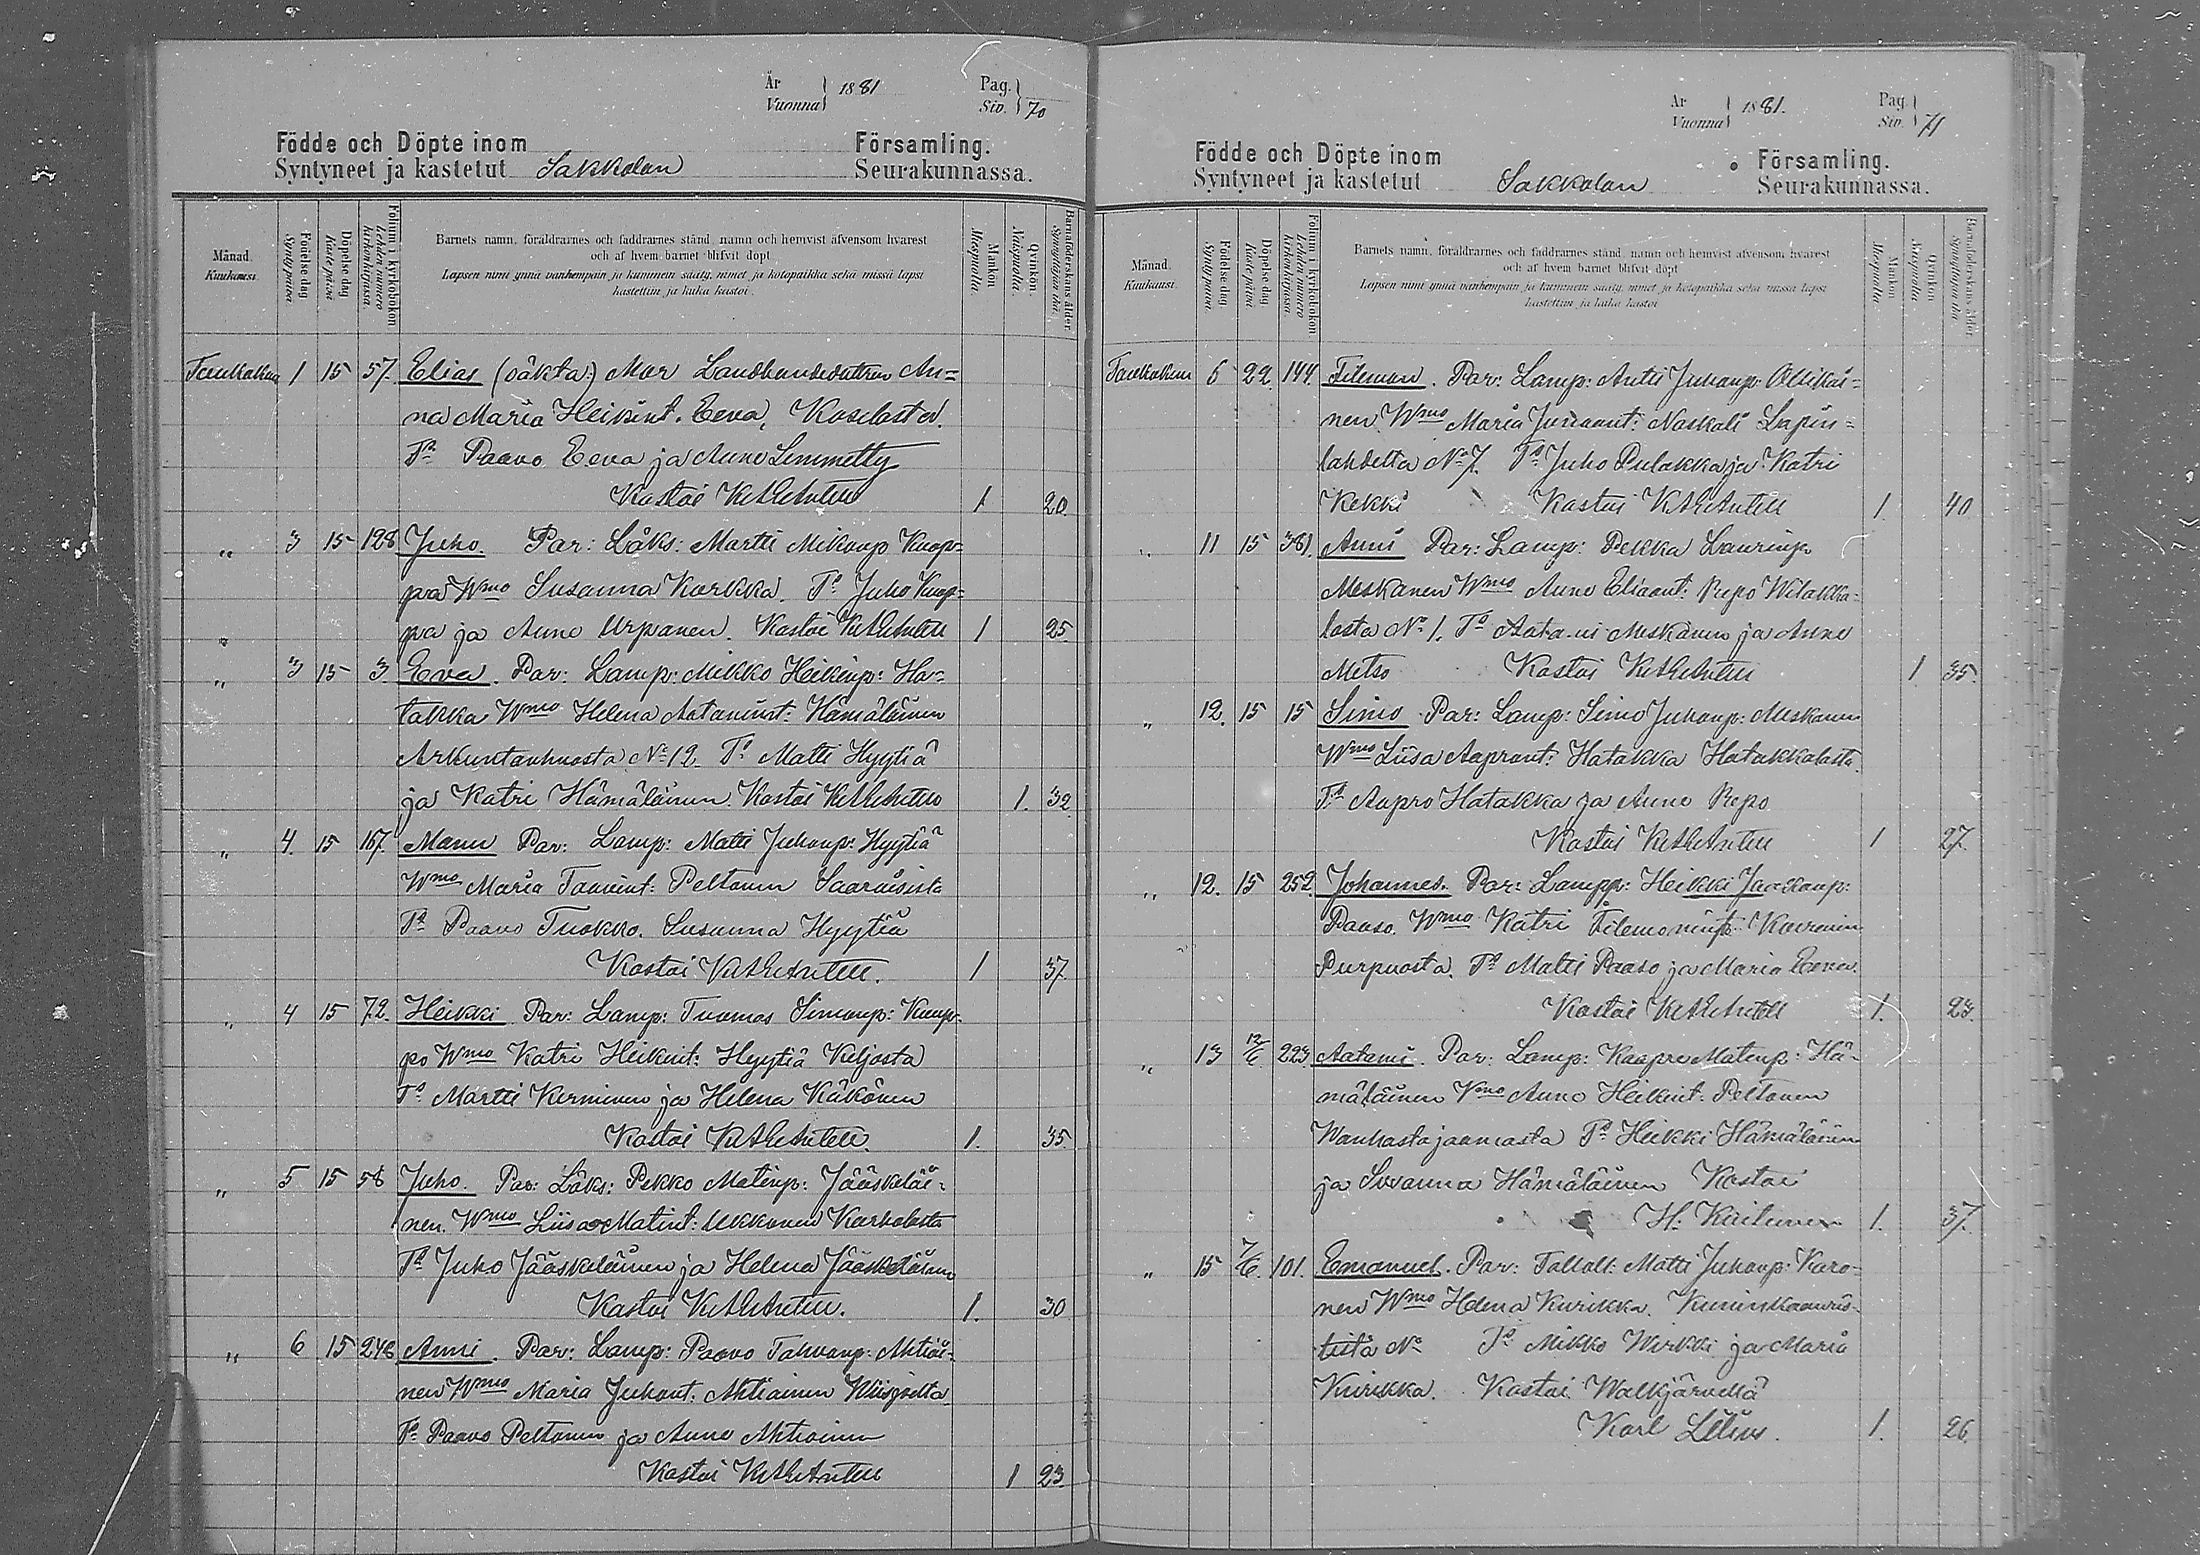 År
Vuonna 1881
Pag.
Siv. 70
Födde och Döpte inom Församling.
Syntyneet ja kastetut Sakkolan Seurakunnassa.
Månad.
Kuukausi.
Födelsedag
Syntypäivä.
Döpelsedag
Kastepäivä.
Folium i kyrkoboken
Lehden numero
kirkonkirjassa.
Barnets namn, föräldrarnes och faddrarnes stånd, namn och hemvist äfvensom hvarest
och af hvem barnet blifvit döpt
Lapsen nimi ynnä vanhempain ja kummein sääty, nimet ja kotopaikka sekä missä lapsi
kastettiin ja kuka kastoi.
Mankön
Miespuolia.
Qvinkön.
Naispuolia.
Barnaföderskans ålder.
Synnyttäjän ikä.
Toukokuu 1 15 57. Elias (oäkta:) Mor Landbondedottren An=
na Maria Heikint. Eeva, Koselasta.
Ts Paavo Eeva ja Anno Lemmetty
Kastoi 1 20.
„ 3 15 128 Juho. Par: Låks: Martti Mikonp Kaap=
pa Wmo Susanna Kurkka. Ts Juho Kaap=
pa ja Anno Urpanen. Kastoi 1 25
„ 3 15 3 Eeva. Par: Lamp: Mikko Heikinp: Ha=
takka Wmo Helena Aatamint: Hämäläinen
Arkuntanhuasta No 12. Ts Matti Hyytiä
ja Katri Hämäläinen. Kastoi 1. 32
„ 4. 15 167. Manu Par: Lamp: Matti Juhonp: Hyytiä
Wmo Maria Taavint: Peltonen Saaroisista
Ts Paavo Tuokko. Susanna Hyytiä
Kastoi 1 37.
„ 4 15 72. Heikki. Par: Lamp: Tuomas Simonp: Kaap=
po Wmo Katri Heikint: Hyytiä Keljosta
Ts Martti Kerminen ja Helena Käkönen
Kastoi 1. 35
„ 5 15 58 Juho. Par: Låks: Pekko Matinp: Jääskeläi=
nen. Wmo Liisa Matint: Ukkonen Karholasta
Ts Juho Jääskeläinen ja Helena Jääskeläinen
Kastoi 1. 30
„ 6 15 248 Anni. Par: Lamp: Paavo Tahvanp: Ahtiai=
nen Wmo Maria Juhont: Ahtiainen Wiisjoelta.
Ts Paavo Peltonen ja Anno Ahtiainen
Kastoi 1 23.
År
Vuonna 1881.
Pag
Siv. 71
Födde och Döpte inom Församling.
Syntyneet ja kastetut Sakkolan Seurakunnassa.
Månad.
Kuukausi.
Födelsedag
Syntypäivä.
Döpelsedag
Kastepäivä.
Folium i kyrkoboken
Lehden numero
kirkonkirjassa.
Barnets namn, föräldrarnes och faddrarnes stånd, namn och hemvist äfvensom hvarest
och af hvem barnet blifvit döpt
Lapsen nimi ynnä vanhempain ja kummein sääty, nimet ja kotopaikka sekä missä lapsi
kastettiin ja kuka kastoi
Mankön
Miespuolia
Qvinkön
Naispuolia
Barnaföderskans ålder.
Synnyttäjän ikä
Toukokuu 5 22. 144. Fileman. Par: Lamp: Antti Juhonp: Ollikai=
nen Wmo Maria Juhont: Naskali Lapin=
lahdelta No 7. Ts Juho Pulakka ja Katri
Kekki Kastoi 1. 40
„ 11 15 381. Anni Par: Lamp: Pekka Laurinp
Meskanen Wmo Anno Eliaant: Repo Wilakka=
lasta No 1. Ts Aatami Meskanen ja Anno
Metso Kastoi 1 35.
„ 12. 15 15 Simo Par: Lamp: Simo Juhonp: Meskanen
Wmo Liisa Aapront: Hatakka Hatakkalasta.
Ts Aapro Hatakka ja Anno Repo
Kastoi 1 27.
„ 12. 15 252. Johannes. Par: Lampp: Heikki Jaakonp:
Paaso. Wmo Katri Filemonint: Kuronen
Purpuasta. Ts Matti Paaso ja Maria Eeva.
Kastoi 1. 23.
„ 13 12/6. 223. Aatami. Par: Lamp: Kaapro Matinp: Hä=
mäläinen Vmo Anno Heikint: Peltonen
Wanhastajaamasta Ts Heikki Hämäläinen
ja Susanna Hämäläinen Kastoi
H. 1. 37.
„ 15 7/6. 101. Emanuel. Par: Matti Juhonp: Kuro=
nen Wmo Helena Kurikka.
tistä No Ts Mikko Wirkki ja Maria
Kurikka. Kastoi Walkjärvellä
Karl 1. 26.